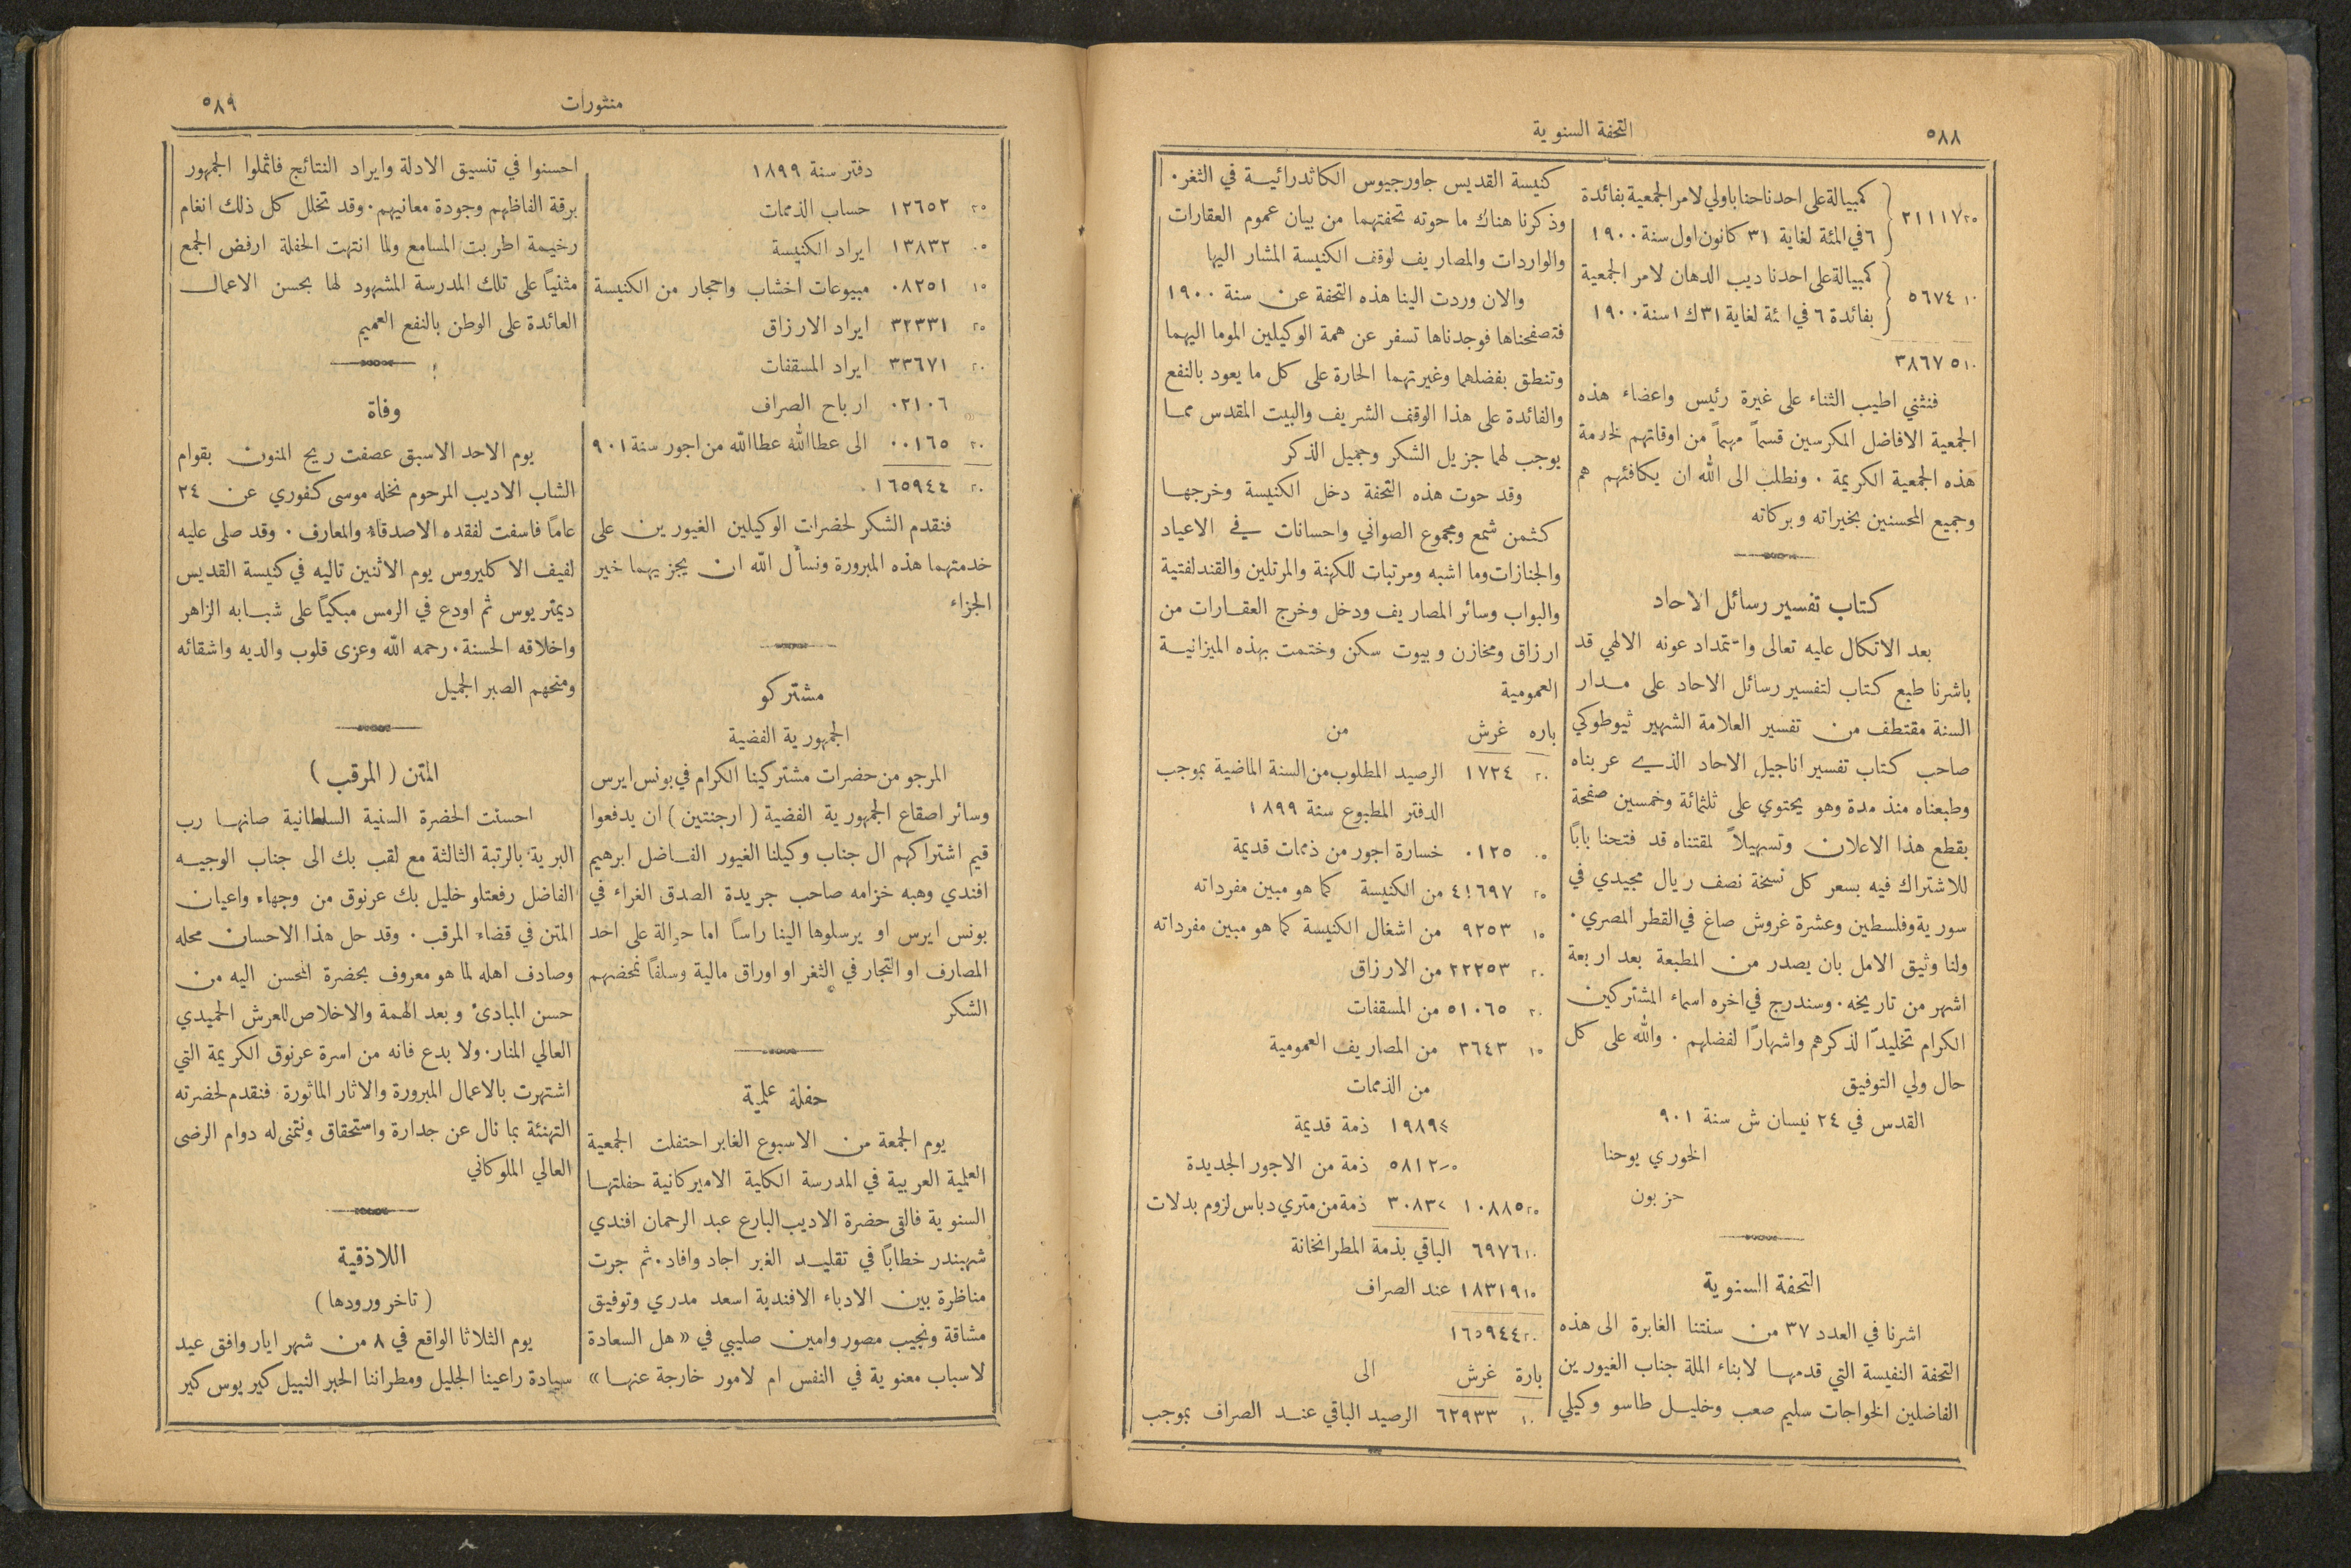 ٥٨٨
التحفة السنوية
٢١١١٧ ٢٥ كمبيالة على احدنا حنا باولي لامر الجمعية بفائدة
٦ في المئة لغاية ٣١ كانون اول سنة ١٩٠٠
٥٦٧٤ ١٠ كمبيالة على احدنا ديب الدهان لامر الجمعية
بفائدة ٦ في ائة لغاية ٣١ ك١ سنة ١٩٠٠
٣٨٦٧٥ ١٠
فنثني اطيب الثناء على غيرة رئيس واعضاء هذه
الجمعية الافاضل المكرسين قسماً مهماً من اوقاتهم لخدمة
هذه الجمعية الكريمة . ونطلب الى الله ان يكافئهم هم
وجميع المحسنين بخيراته وبركاته
كتاب تفسير رسائل الاحاد
بعد الاتكال عليه تعالى واستمداد عونه الالهي قد
باشرنا طبع كتاب لتفسير رسائل الاحاد على مدار
السنة مقتطف من تفسير العلامة الشهير ثيوطوكي
صاحب كتاب تفسير اناجيل الاحاد الذي عربناه
وطبعناه منذ مدة وهو يحتوي على ثلثمائة وخمسين صفحة
بقطع هذا الاعلان وتسهيلاً لمقتناه قد فتحنا بابًا
للاشتراك فيه بسعر كل نسخة نصف ريال مجيدي في
سورية وفلسطين وعشرة غروش صاغ في القطر المصري .
ولنا وثيق الامل بان يصدر من المطبعة بعد اربعة
اشهر من تاريخه . وسندرج في اخره اسماء المشتركين
الكرام تخليدًا لذكرهم واشهارًا لفضلهم . والله على كل
حال ولي التوفيق
القدس في ٢٤ نيسان ش سنة ٩٠١
الخوري يوحنا
حزبون
التحفة السنوية
اشرنا في العدد ٣٧ من سنتنا الغابرة الى هذه
التحفة النفيسة التي قدمها لابناء الملة جناب الغيورين
الفاضلين الخواجات سليم صعب وخليل طاسو وكيلي
كنيسة القديس جاورجيوس الكاثدرائية في الثغر .
وذكرنا هناك ما حوته تحفتهما من بيان عموم العقارات
والواردات والمصاريف لوقف الكنيسة المشار اليها
والان وردت الينا هذه التحفة عن سنة ١٩٠٠
فتصفحناها فوجدناها تسفر عن همة الوكيلين الموما اليهما
وتنطق بفضلهما وغيرتهما الحارة على كل ما يعود بالنفع
والفائدة على هذا الوقف الشريف والبيت المقدس مما
يوجب لهما جزيل الشكر وجميل الذكر
وقد حوت هذه التحفة دخل الكنيسة وخرجها
كثمن شمع ومجموع الصواني واحسانات في الاعياد
والجنازات وما اشبه ومرتبات للكهنة والمرتلين والقندلفتية
والبواب وسائر المصاريف ودخل وخرج العقارات من
ارزاق ومخازن وبيوت سكن وختمت بهذه الميزانية
العمومية
باره غرش من
٢٠ ١٧٢٤ الرصيد المطلوب من السنة الماضية بموجب
الدفتر المطبوع سنة ١٨٩٩
٠٥ ٠١٢٥ خسارة اجور من ذممات قديمة
٢٥ ٤١٦٩٧ من الكنيسة كما هو مبين مفرداته
١٥ ٩٢٥٣ من اشغال الكنيسة كما هو مبين مفرداته
٢٠ ٢٢٢٥٣ من الارزاق
٢٠ ٥١٠٦٥ من المسقفات
١٥ ٣٦٤٣ من المصاريف العمومية
من الذممات
١٩٨٩ ذمة قديمة
٥٨١٢ ذمة من الاجور الجديدة
٢٥ ١٠٨٨٥ ٣٠٨٣ ذمة من متري دباس لزوم بدلات
١٠ ٦٩٧٦ الباقي بذمة المطرانخانة
١٥ ١٨٣١٩ عند الصراف
٢٠ ١٦٥٩٤٤
بارة غرش الى
١٠ ٦٢٩٣٣ الرصيد الباقي عند الصراف بموجب
منثورات
٥٨٩
دفتر سنة ١٨٩٩
٢٥ ١٢٦٥٢ حساب الذممات
٠٥ ١٣٨٣٢ ايراد الكنيسة
١٥ ٠٨٢٥١ مبيوعات اخشاب واحجار من الكنيسة
٢٥ ٣٢٣٣١ ايراد الارزاق
٢٠ ٣٣٦٧١ ايراد المسقفات
» ٠٢١٠٦ ارباح الصراف
٢٠ ٠٠١٦٥ الى عطاالله عطاالله من اجور سنة ٩٠١
٢٠ ١٦٥٩٤٤
فنقدم الشكر لحضرات الوكيلين الغيورين على
خدمتهما هذه المبرورة ونسأل الله ان يجزيهما خير
الجزاء
مشتركو
الجمهورية الفضية
المرجو من حضرات مشتركينا الكرام في بونس ايرس
وسائر اصقاع الجمهورية الفضية ( ارجنتين ) ان يدفعوا
قيم اشتراكهم ال جناب وكيلنا الغيور الفاضل ابرهيم
افندي وهبه خزامه صاحب جريدة الصدق الغراء في
بونس ايرس او يرسلوها الينا راسًا اما حوالة على احد
المصارف او التجار في الثغر او اوراق مالية وسلفًا نمحضهم
الشكر
حفلة علمية
يوم الجمعة من الاسبوع الغابر احتفلت الجمعية
العلمية العربية في المدرسة الكلية الاميركانية حفلتها
السنوية فالقى حضرة الاديب البارع عبد الرحمان افندي
شهبندر خطابًا في تقليد الغير اجاد وافاد . ثم جرت
مناظرة بين الادباء الافندية اسعد مدري وتوفيق
مشاقة ونجيب مصور وامين صليبي في « هل السعادة
لاسباب معنوية في النفس ام لامور خارجة عنها »
احسنوا في تنسيق الادلة وايراد النتائج فاثملوا الجمهور
برقة الفاظهم وجودة معانيهم . وقد تخلل كل ذلك انغام
رخيمة اطربت المسامع ولما انتهت الحفلة ارفض الجمع
مثنيًا على تلك المدرسة المشهود لها بحسن الاعمال
العائدة على الوطن بالنفع العميم
وفاة
يوم الاحد الاسبق عصفت ريح المنون بقوام
الشاب الاديب المرحوم نخله موسى كفوري عن ٢٤
عامًا فاسفت لفقده الاصدقاء والمعارف . وقد صلى عليه
لفيف الاكليروس يوم الاثنين تاليه في كنيسة القديس
ديمتريوس ثم اودع في الرمس مبكيًا على شبابه الزاهر
واخلاقه الحسنة . رحمه الله وعزى قلوب والديه واشقائه
ومنحهم الصبر الجميل
المتن ( المرقب )
احسنت الحضرة السنية السلطانية صانها رب
البرية بالرتبة الثالثة مع لقب بك الى جناب الوجيه
الفاضل رفعتلو خليل بك عرنوق من وجهاء واعيان
المتن في قضاء المرقب . وقد حل هذا الاحسان محله
وصادف اهله لما هو معروف بحضرة المحسن اليه من
حسن المبادئ وبعد الهمة والاخلاص للعرش الحميدي
العالي المنار . ولا بدع فانه من اسرة عرنوق الكريمة التي
اشتهرت بالاعمال المبرورة والاثار الماثورة فنقدم لحضرته
التهنئة بما نال عن جدارة واستحقاق ونتمنى له دوام الرضى
العالي الملوكاني
اللاذقية
( تاخر ورودها )
يوم الثلاثا الواقع في ٨ من شهر ايار وافق عيد
سيادة راعينا الجليل ومطراننا الحبر النبيل كيريوس كير